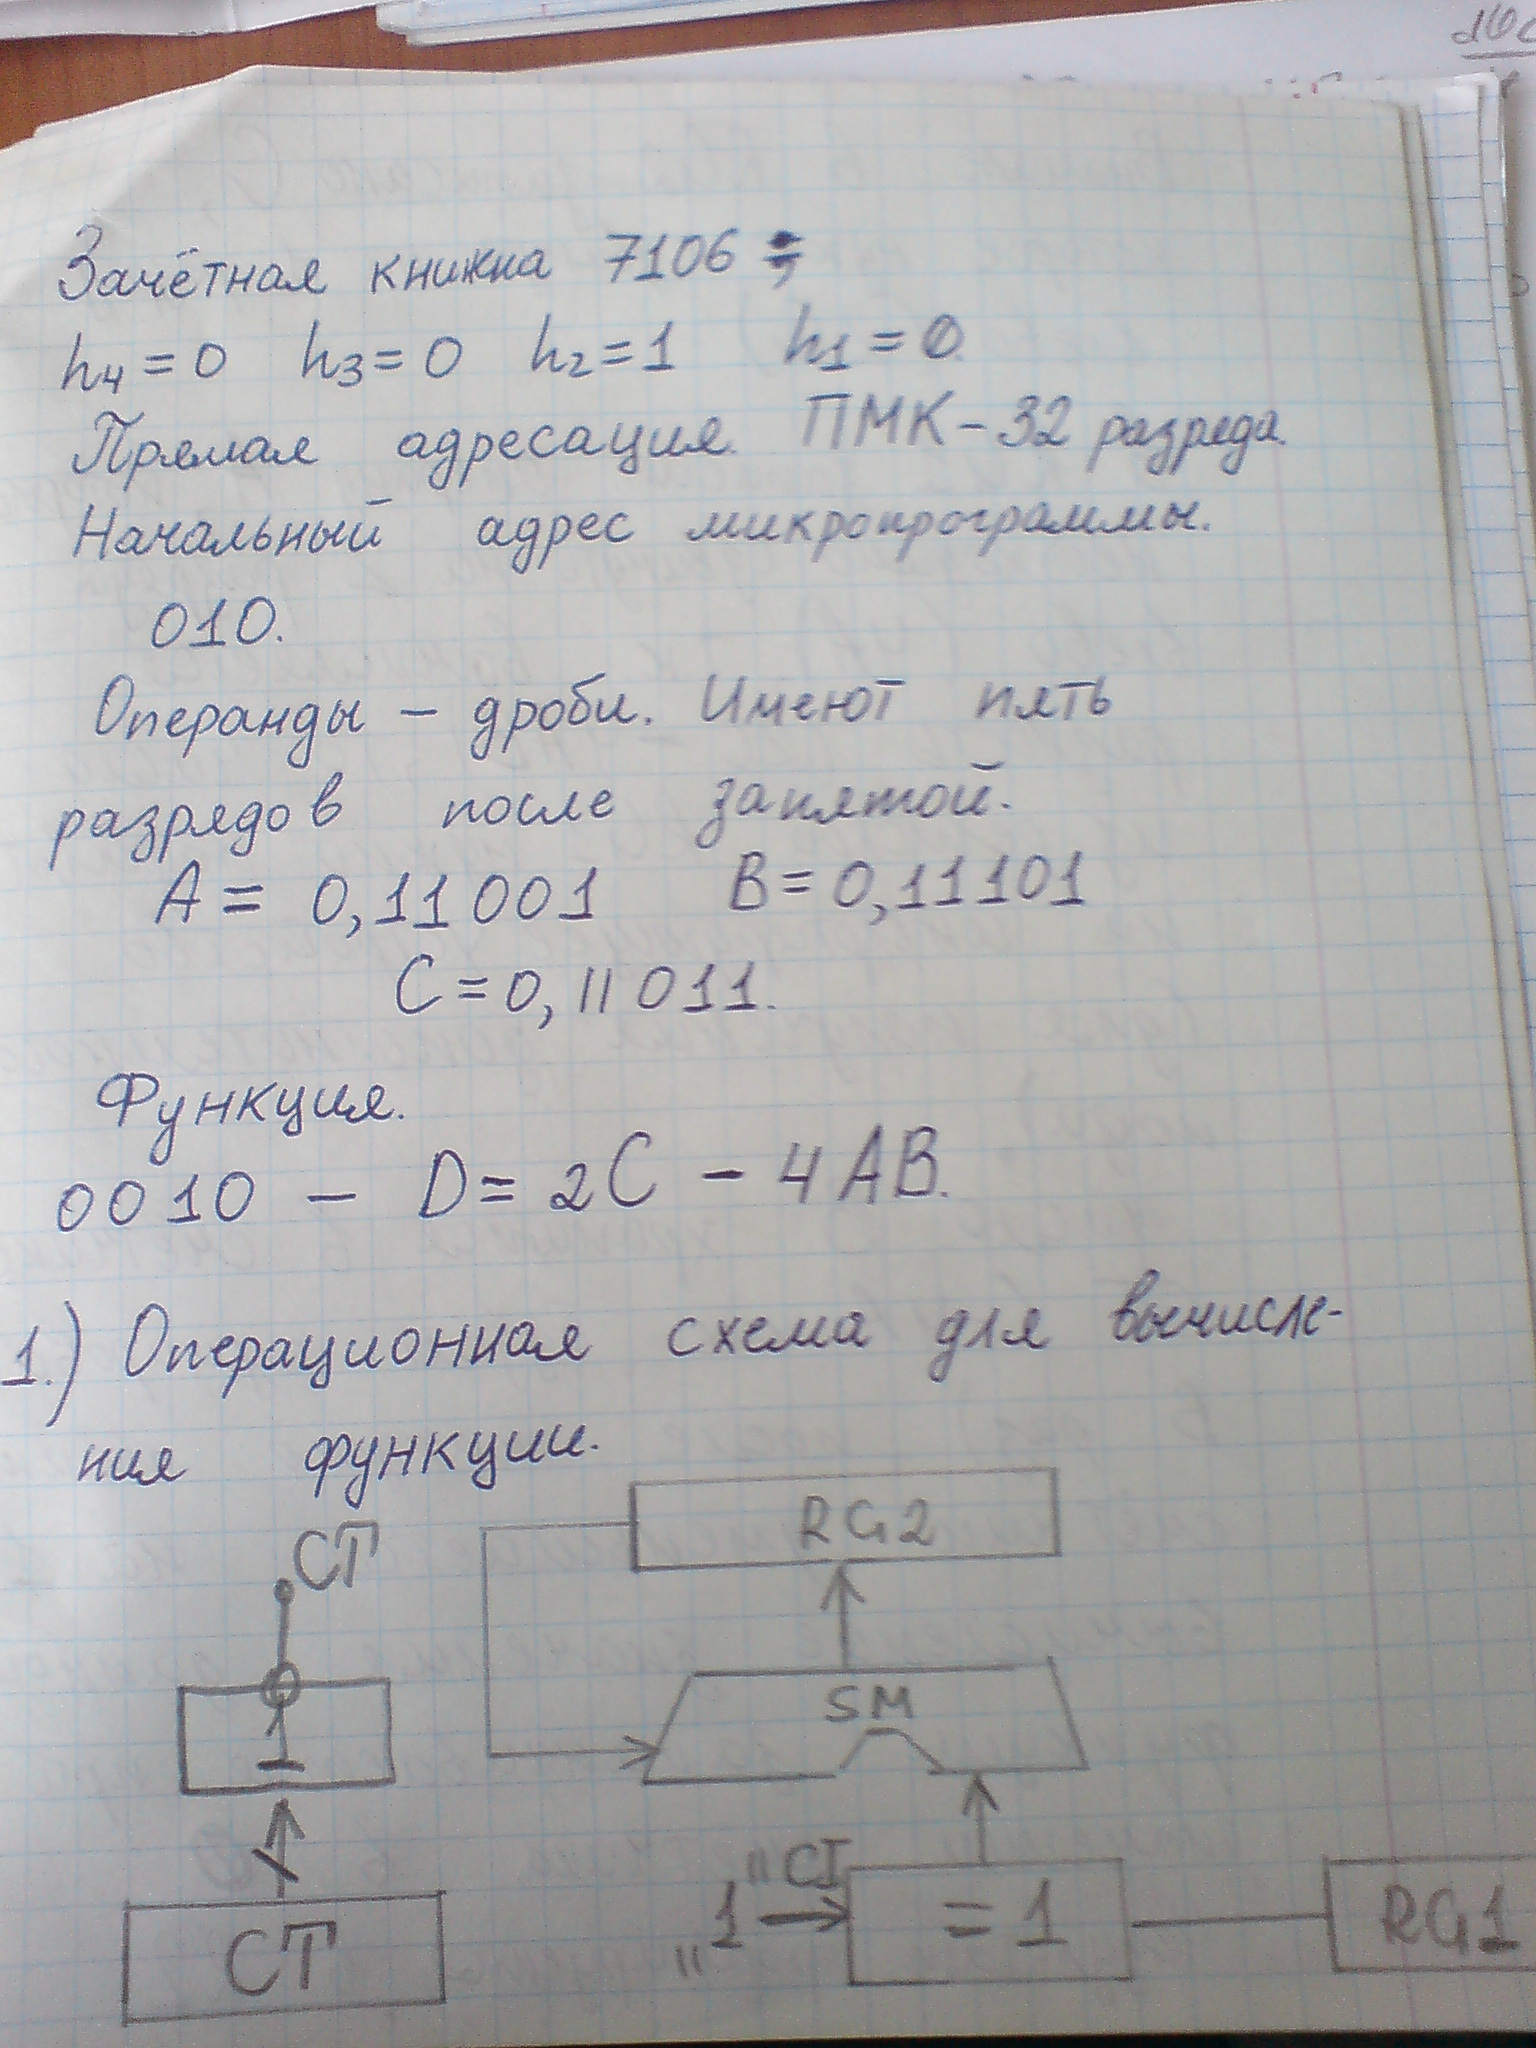 Зачётная книжка 7106
h4 = 0 h3 = 0 h2 = 1 h1 = 0
Прямая адресация. ПМК - 32 разряда.
Начальный адрес микропрограммы.
010.
Операнды - дроби. Имеют пять
разрядов после запятой.
A = 0,11001 B = 0,11101
C = 0,11011.
Функция.
0010 - D = 2C - 4AB.
1.) Операционная схема для вычисле-
ния функции.
RG2
СТ
1
SM
"1" СТ
= 1
RG1
СТ